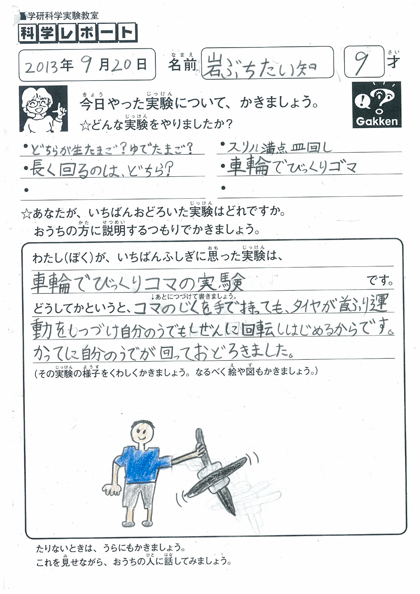 学研科学実験教室
科学レポート
2013年9月20日 名前 岩ぶちたい知 9才
今日やった実験について、かきましょう。
☆どんな実験をやりましたか?
Gakken
・どちらが生たまご?ゆでたまご? ・スリル満点皿回し
・長く回るのは、どちら? ・車輪でびっくりゴマ
☆あなたが、いちばんおどろいた実験はどれですか。
おうちの方に説明するつもりでかきましょう。
わたし(ぼく)が、いちばんふしぎに思った実験は、
車輪でびっくりコマの実験 です。
↓あとにつづけて書きましょう。
どうしてかというと、コマのじくを手で持っても、タイヤが首ふり運
動をしつづけ自分のうでもしぜんに回転しはじめるからです。
かってに自分のうでが回っておどろきました。
(その実験の様子をくわしくかきましょう。なるべく絵や図もかきましょう。)
たりないときは、うらにもかきましょう。
これを見せながら、おうちの人に話してみましょう。